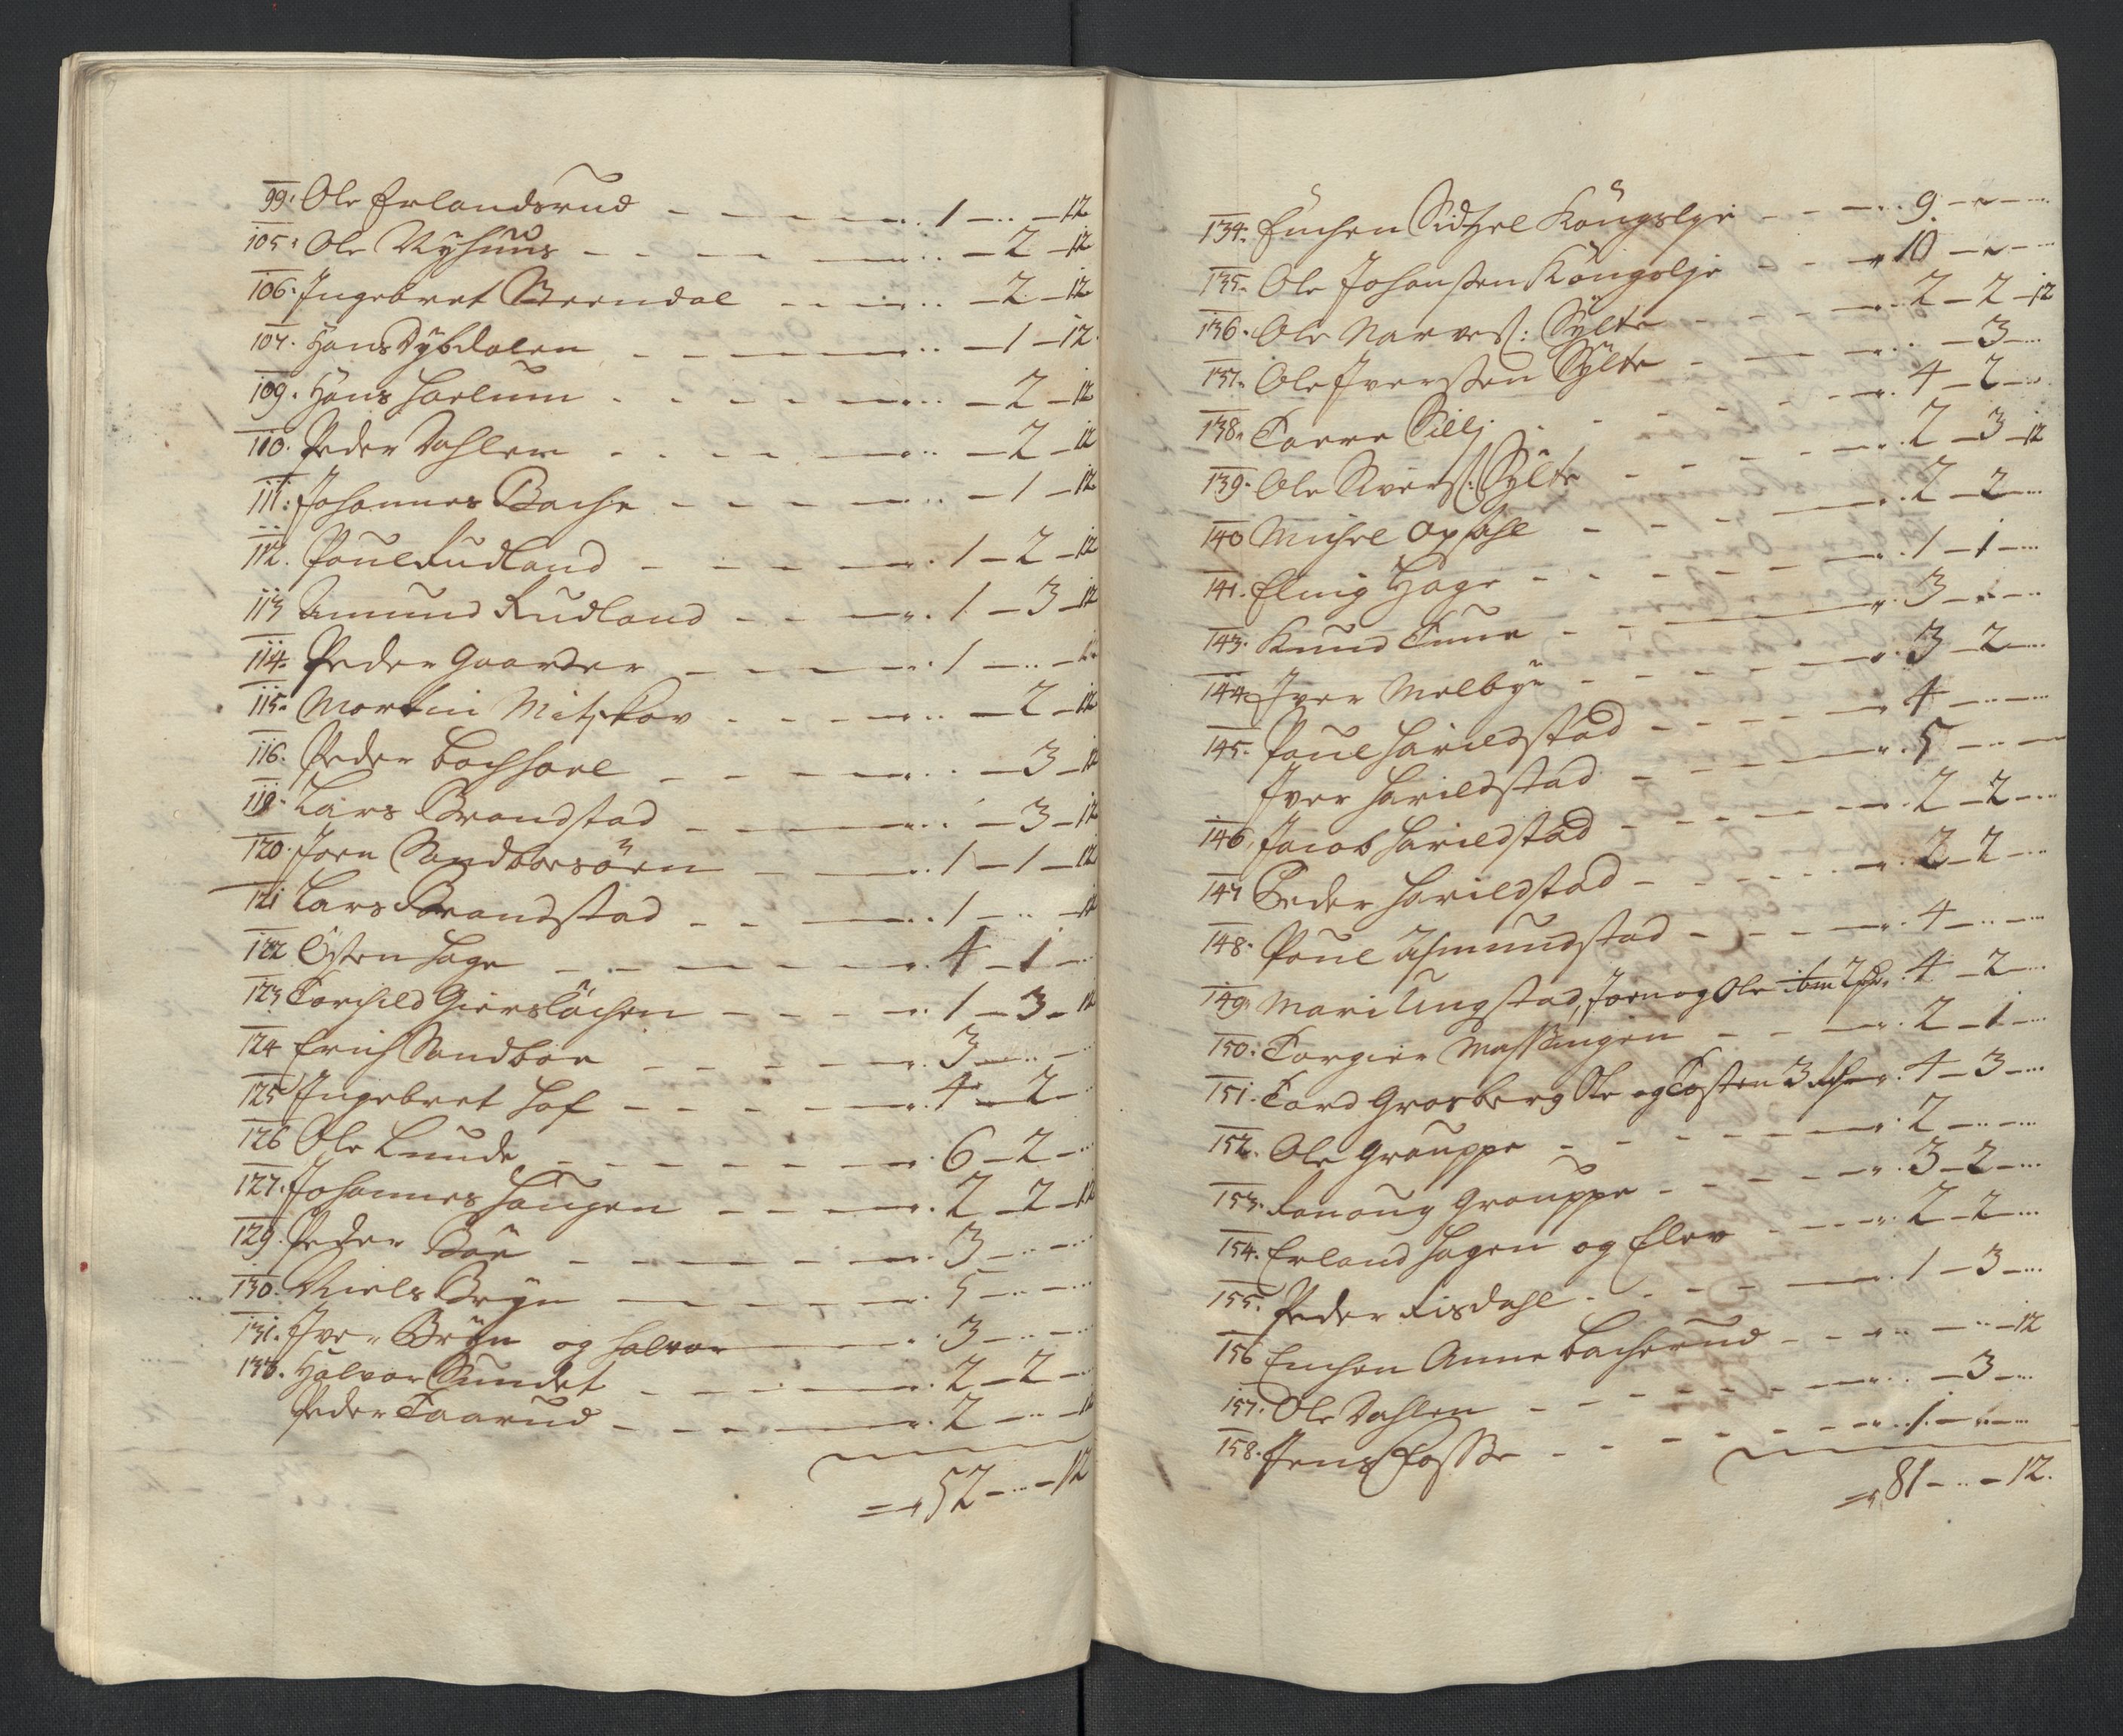 99. Ole Erlandsrud - - - - 1 - .. - 12
105. Ole Nyhuus - - - - .. - 2 - 12
106. Ingebret Steendal - - - .. - 2 - 12
107. Hans Dybdalen - - - - .. - 1 - 12.
109. Hans Horlum - - - - .. - 2 - 12
110. Peder Dahlen - - - - .. - 2 - 12
111. Johannes Bache - - - - .. - 1 - 12
112. Poul Rudland - - - - 1 - 2 - 12
113 Amund Rudland - - - 1 - 3 - 12
114. Peder Gaarder - - - - 1 - .. - 12
115. Morten Mitskov - - - .. - 2 - 12
116. Peder Lochhorl - - - .. - 3 - 12
118. Lars Brandstad - - - .. - 3 - 12
120. Joen Sandboesöen - - 1 - 1 - 12
121 Lars Brandstad - - - 1 - .. - 12
122 Østen Hage - - - - 4 - 1 - ..
123 Torchild Gierslöchen - - - 1 - 3 - 12
124 Erich Sandboe - - - - 3 - .. - ..
125 Ingebret Hof - - - - 4 - 2 - ..
126 Ole Lunde - - - - 6 - 2 - ..
127. Johannes Haugen - - - 2 - 2 - 12
129. Peder Böe - - - - 3 - .. - ..
130. Niels Bryn - - - - 5 - .. - ..
131. Iver Bryn og Halvor - 3 - .. - ..
133. Halvor Sundet - - - - 2 - 2 - ..
Peder Taarud - - - - 2 - .. - 12
= 52 - .. - 12
134. Enchen Sidzel Kongslye - - 9. - .. - ..
135. Ole Johansen Kongslye - - 10 - .. - ..
136. Ole Narves: Sylte - - - 2 - 2 - 12
137. Ole Iversen Sylte - - - .. - 3 - ..
138. Torre Sille - - - - 4 - 2 - ..
139. Ole Sivers: Sylte - - - 2 - 3 - 12
140 Michel Opsahl - - - - 2 - 2 - ..
141. Elling Hage - - - - 1 - 1 - ..
143. Knud Tune - - - - 3 - .. - ..
144. Iver Melbye - - - - 3 - 2 - ..
145. Poul Harildstad - - - - 4 - .. - ..
Iver Harildstad - - - - 5 - .. - ..
146. Jacob Harildstad - - - - 2 - 2 - ..
147 Peder Harildstad - - - - 2 - 2 - ..
148. Poul Asmundstad - - - 4 - .. - ..
149. Mari Ungstad, Joen og Ole 4 - 2 - ..
150. Torgier Massingen - - - 2 - 1 - ..
151. Tord Grosberg Ole og Tosten 3 4 - 3 - ..
152. Ole Grouppe - - - - 2 - .. - ..
153. Ranoug Grouppe - - - - 3 - 2 - ..
154. Erland Hagen og Elev - - - 2 - 2 - ..
155. Peder Risdahl - - - - 1 - 3 - ..
156 Enchen Anne Bacherud - - - .. - .. - 12
157. Ole Dahlen - - - - .. - 3 - ..
158. Jens Fosse - - - - 1 - .. - ..
= 81 - .. - 12.